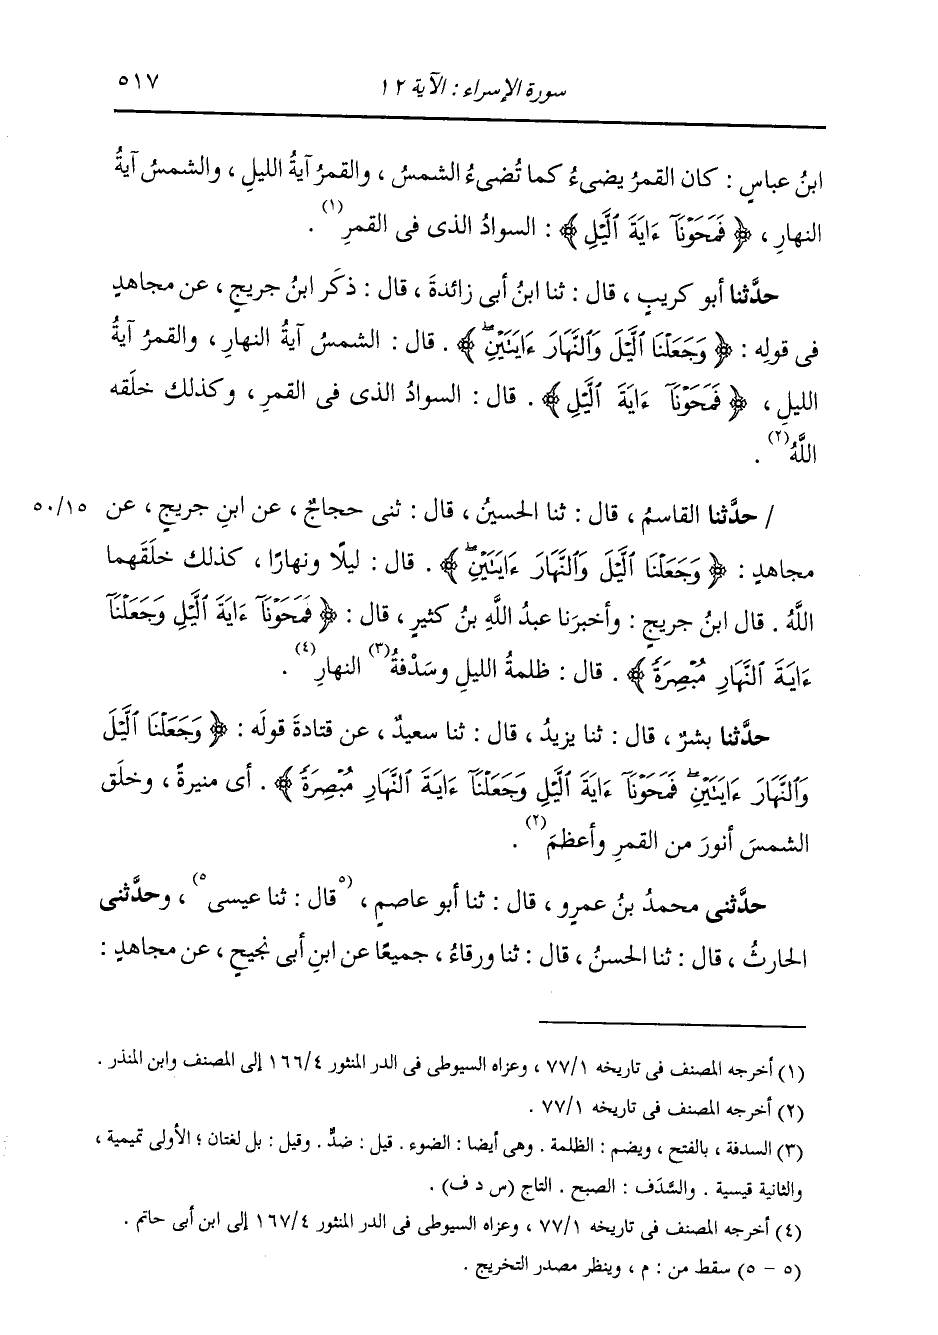 سورة الإسراء : الآية ١٢
٥١٧
ابنُ عباسٍ : كان القمرُ يضىءُ كما تُضىءُ الشمسُ ، والقمرُ آيةُ الليلِ ، والشمسُ آيةُ
النهارِ ، ﴿ فَمَحَوْنَآ ءَايَةَ ٱلَّيْلِ ﴾ : السوادُ الذى فى القمرِ(١) .
حدَّثنا أبو كريبٍ ، قال : ثنا ابنُ أبى زائدةَ ، قال : ذكَر ابنُ جريجٍ ، عن مجاهدٍ
فى قولِه : ﴿ وَجَعَلْنَا ٱلَّيْلَ وَٱلنَّهَارَ ءَايَتَيْنِۖ ﴾ . قال : الشمسُ آيةُ النهارِ ، والقمرُ آيةُ
الليلِ ، ﴿ فَمَحَوْنَآ ءَايَةَ ٱلَّيْلِ ﴾ . قال : السوادُ الذى فى القمرِ ، وكذلك خلَقه
اللَّهُ(٢) .
/ حدَّثنا القاسمُ ، قال : ثنا الحسينُ ، قال : ثنى حجاجٌ ، عن ابنِ جريجٍ ، عن
٥٠/١٥
مجاهدٍ : ﴿ وَجَعَلْنَا ٱلَّيْلَ وَٱلنَّهَارَ ءَايَتَيْنِۖ ﴾ . قال : ليلًا ونهارًا ، كذلك خلَقَهما
اللَّهُ . قال ابنُ جريجٍ : وأخبرَنا عبدُ اللَّهِ بنُ كثيرٍ ، قال : ﴿ فَمَحَوْنَآ ءَايَةَ ٱلَّيْلِ وَجَعَلْنَآ
ءَايَةَ ٱلنَّهَارِ مُبْصِرَةً ﴾ . قال : ظلمةُ الليلِ وسَدْفةُ(٣) النهارِ(٤) .
حدَّثنا بشرٌ ، قال : ثنا يزيدُ ، قال : ثنا سعيدٌ ، عن قتادةَ قولَه : ﴿ وَجَعَلْنَا ٱلَّيْلَ
وَٱلنَّهَارَ ءَايَتَيْنِۖ فَمَحَوْنَآ ءَايَةَ ٱلَّيْلِ وَجَعَلْنَآ ءَايَةَ ٱلنَّهَارِ مُبْصِرَةً ﴾ . أى منيرةً ، وخلَق
الشمسَ أنورَ من القمرِ وأعظمَ(٢) .
حدَّثنى محمدُ بنُ عمرٍو ، قال : ثنا أبو عاصمٍ ، (٥قال : ثنا عيسى٥) ، وحدَّثنى
الحارثُ ، قال : ثنا الحسنُ ، قال : ثنا ورقاءُ ، جميعًا عن ابنِ أبى نجيحٍ ، عن مجاهدٍ :
(١) أخرجه المصنف فى تاريخه ٧٧/١ ، وعزاه السيوطى فى الدر المنثور ١٦٦/٤ إلى المصنف وابن المنذر .
(٢) أخرجه المصنف فى تاريخه ٧٧/١ .
(٣) السدفة ، بالفتح ، ويضم : الظلمة . وهى أيضا : الضوء . قيل : ضدٌّ . وقيل : بل لغتان ؛ الأولى تميمية ،
والثانية قيسية . والسَّدَف : الصبح . التاج (س د ف) .
(٤) أخرجه المصنف فى تاريخه ٧٧/١ ، وعزاه السيوطى فى الدر المنثور ١٦٧/٤ إلى ابن أبى حاتم .
(٥ - ٥) سقط من : م ، وينظر مصدر التخريج .